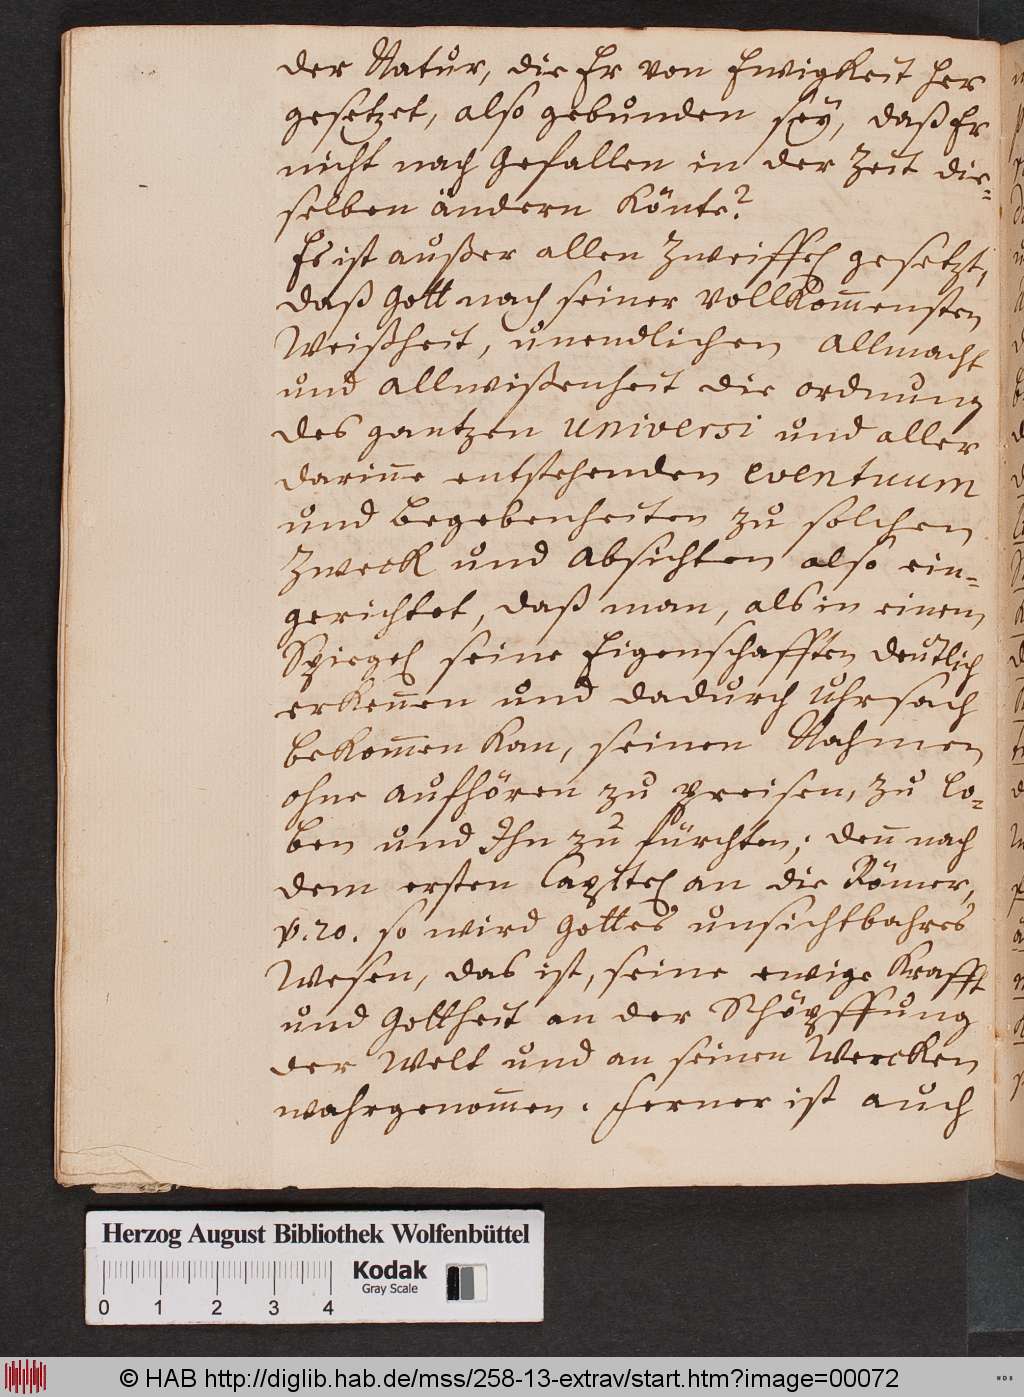 der Natur, die Er von Ewigkeit her
gesetzet, also gebunden seÿ, daß Er
nicht nach Gefallen in der Zeit die-
selben ändern könte?
Es ist außer allen Zweiffel gesetzt,
daß Gott nach seiner vollkom̅ensten
Weißheit, unendlichen Allmacht
und Allwißenheit die ordnung
des gantzen universi und aller
darin̅e entstehenden eventuum
und Begebenheiten zu solchen
Zweck und Absichten also ein-
gerichtet, daß man, als in einem
Spiegel seine Eigenschafften deutlich
erken̅en und dadurch Uhrsach
bekom̅en kan, seinen Nahmen
ohne aufhören zu preisen, zu lo-
ben und Ihn zu fürchten; den̅ nach
dem ersten Capitel an die Römer,
v. 20. so wird Gottes unsichtbahres
Wesen, das ist, seine ewige Krafft
und Gottheit an der Schöpffung
der Welt und an seinen Wercken
wahrgenom̅en. Ferner ist auch
Herzog August Bibliothek Wolfenbüttel
Kodak
Gray Scale
0 1 2 3 4
© HAB http://diglib.hab.de/mss/258-13-extrav/start.htm?image=00072